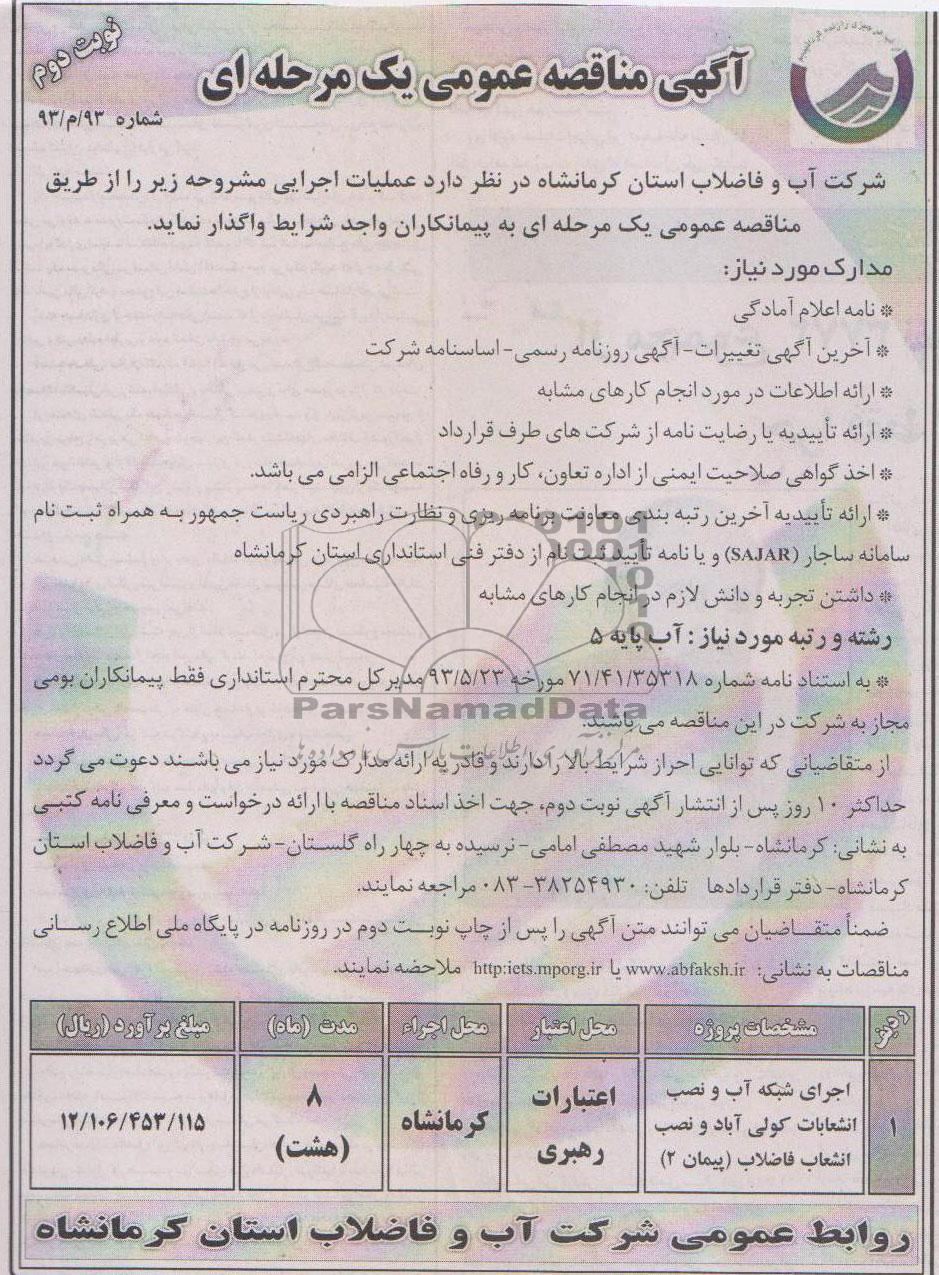 نوبت دوم
آگهی مناقصه عمومی یک مرحله ای
شماره ۹۳/م/۹۳
شرکت آب و فاضلاب استان کرمانشاه در نظر دارد عملیات اجرایی مشروحه زیر را از طریق
مناقصه عمومی یک مرحله ای به پیمانکاران واجد شرایط واگذار نماید.
مدارک مورد نیاز:
* نامه اعلام آمادگی
* آخرین آگهی تغییرات- آگهی روزنامه رسمی- اساسنامه شرکت
* ارائه اطلاعات در مورد انجام کارهای مشابه
* ارائه تأییدیه یا رضایت نامه از شرکت های طرف قرارداد
* اخذ گواهی صلاحیت ایمنی از اداره تعاون، کار و رفاه اجتماعی الزامی می باشد.
* ارائه تأییدیه آخرین رتبه بندی معاونت برنامه ریزی و نظارت راهبردی ریاست جمهور به همراه ثبت نام
سامانه ساجار (SAJAR) و یا نامه تأیید ثبت نام از دفتر فنی استانداری استان کرمانشاه
* داشتن تجربه و دانش لازم در انجام کارهای مشابه
رشته و رتبه مورد نیاز : آب پایه ۵
* به استناد نامه شماره ۷۱/۴۱/۳۵۳۱۸ مورخه ۹۳/۵/۲۳ مدیرکل محترم استانداری فقط پیمانکاران بومی
مجاز به شرکت در این مناقصه می باشند.
ParsNamadData
از متقاضیانی که توانایی احراز شرایط بالا را دارند و قادر به ارائه مدارک مورد نیاز می باشند دعوت می گردد
حداکثر ۱۰ روز پس از انتشار آگهی نوبت دوم، جهت اخذ اسناد مناقصه با ارائه درخواست و معرفی نامه کتبی
به نشانی: کرمانشاه- بلوار شهید مصطفی امامی- نرسیده به چهار راه گلستان- شرکت آب و فاضلاب استان
کرمانشاه- دفتر قراردادها تلفن: ۳۸۲۵۴۹۳۰- ۰۸۳ مراجعه نمایند.
ضمناً متقاضیان می توانند متن آگهی را پس از چاپ نوبت دوم در روزنامه در پایگاه ملی اطلاع رسانی
مناقصات به نشانی: www.abfaksh.ir یا http:iets.mporg.ir ملاحضه نمایند.
ردیف مشخصات پروژه محل اعتبار محل اجراء مدت (ماه) مبلغ برآورد (ریال)
۱ اجرای شبکه آب و نصب انشعابات کولی آباد و نصب انشعاب فاضلاب (پیمان ۲) اعتبارات رهبری کرمانشاه ۸ (هشت) ۱۲/۱۰۶/۴۵۳/۱۱۵
روابط عمومی شرکت آب و فاضلاب استان کرمانشاه